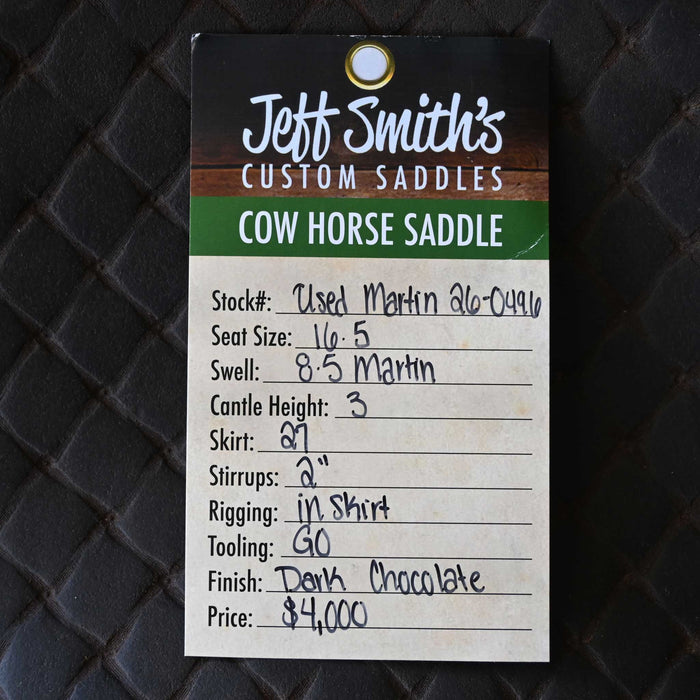 Jeff Smith's
CUSTOM SADDLES
COW HORSE SADDLE
Stock#: Used Martin 26-0496
Seat Size: 16.5
Swell: 8.5 Martin
Cantle Height: 3
Skirt: 27
Stirrups: 2"
Rigging: in Skirt
Tooling: GO
Finish: Dark Chocolate
Price: $4,000